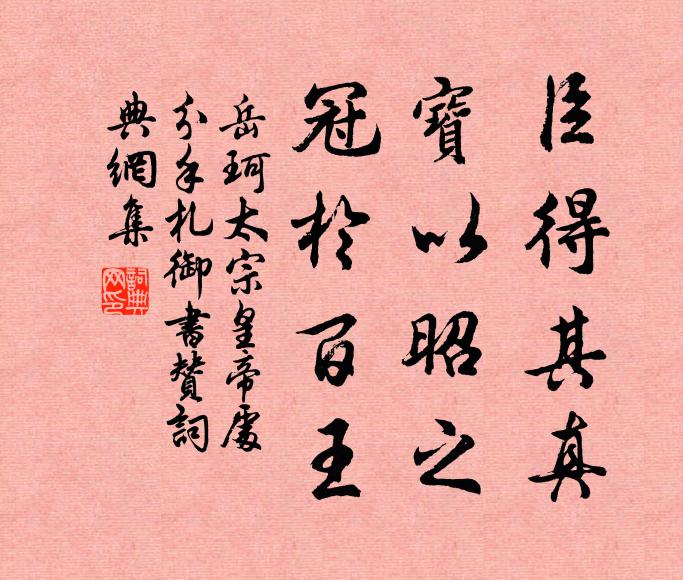 臣得其真
寶以昭之
冠於百王
岳珂太宗皇帝處
分手札御書贊詞
典網集
詞典網印